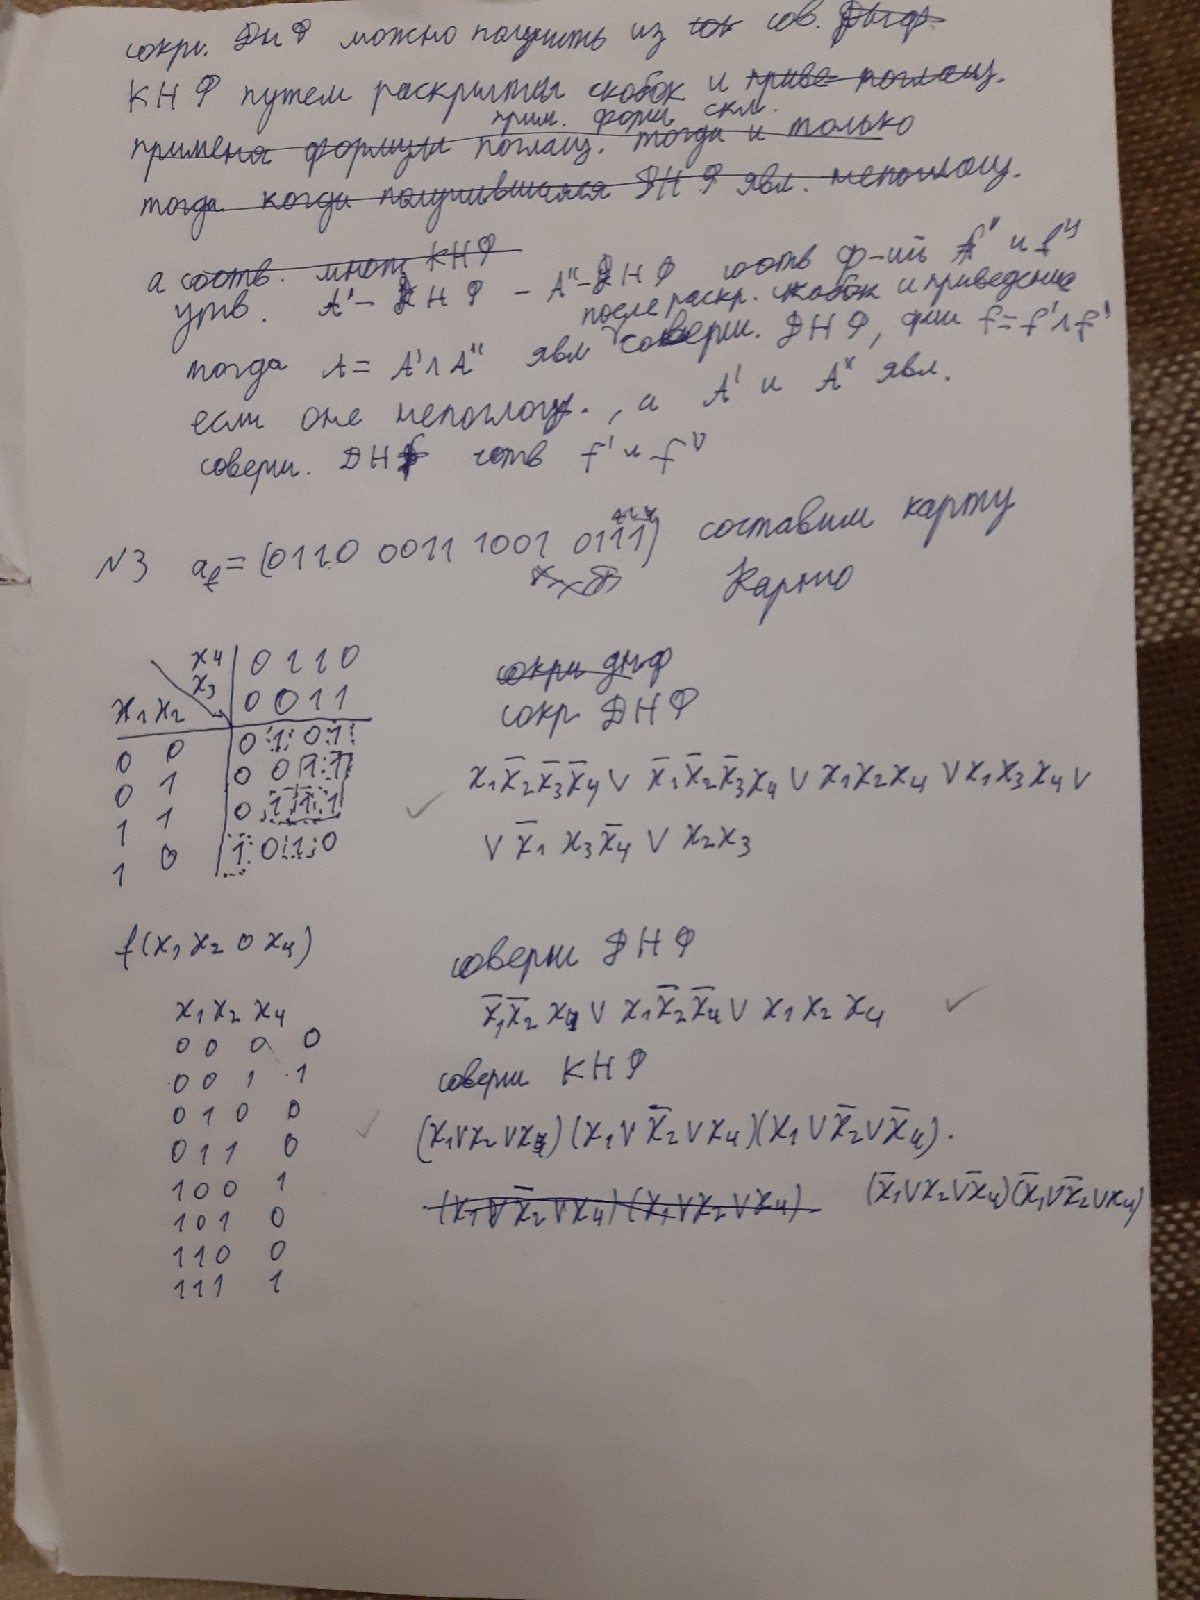 сокр. ДНФ можно получить из сов.
КНФ путем раскрытия скобок и приве поглащ.
прим. форм скл.
применя формули поглащ. тогда и только
тогда когда получившаяся ДНФ явл. непоглощ.
а соотв. мног КНФ
утв. A' - ДНФ - A'' - ДНФ соотв ф-ий f'' и f'
после раскр. скобок и приведения
тогда A = A' ∧ A'' явл соверш. ДНФ, фии f = f' ∧ f'
если оне непоглощ., а A' и A'' явл.
соверш. ДНФ соотв f' и f''
№3 a_f = (0110 0011 1001 0111) составим карту
Карно
x4 0 1 1 0
x3
x1 x2 0 0 1 1
0 0 0 1 0 1
0 1 0 0 1 1
1 1 0 1 1 1
1 0 1 0 1 0
сокри днф
сокр ДНФ
x1x̄2x̄3x̄4 ∨ x̄1x̄2x̄3x4 ∨ x1x2x4 ∨ x1x3x4 ∨
∨ x̄1 x3x̄4 ∨ x2x3
f(x1 x2 0 x4)
x1 x2 x4
0 0 0 0
0 0 1 1
0 1 0 0
0 1 1 0
1 0 0 1
1 0 1 0
1 1 0 0
1 1 1 1
соверш ДНФ
x̄1x̄2 x4 ∨ x1x̄2x̄4 ∨ x1 x2 x4
соверш КНФ
(x1∨x2∨x4)(x1∨x̄2∨x4)(x1∨x̄2∨x̄4).
(x1∨x̄2∨x4)(x1∨x2∨x4) (x̄1∨x2∨x̄4)(x̄1∨x̄2∨x4)